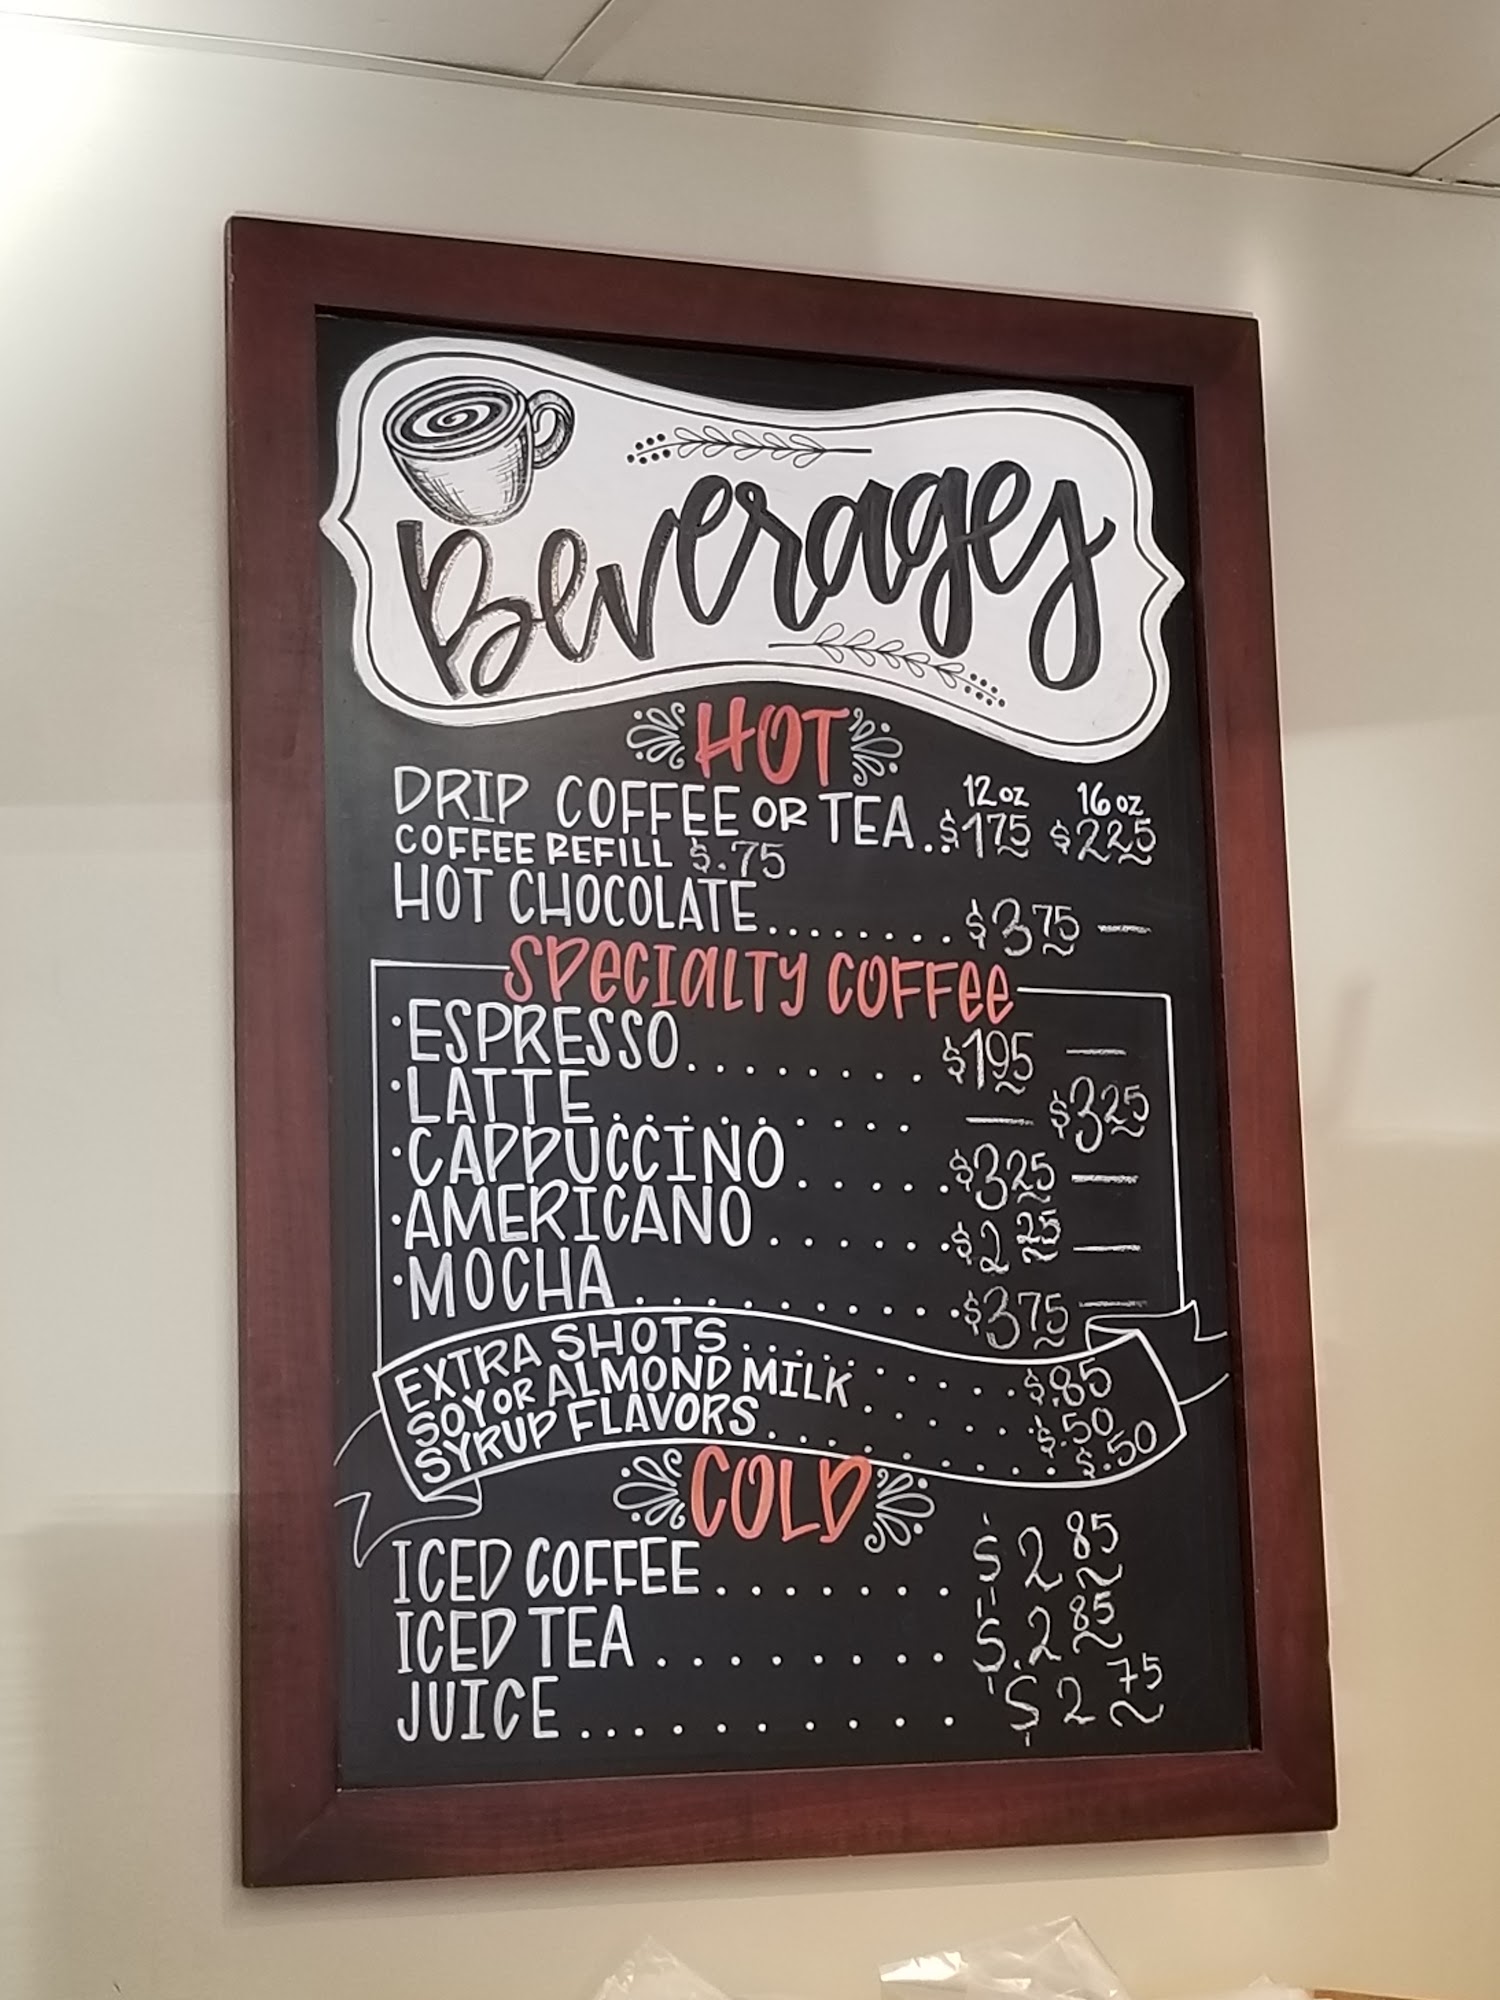 Beverages
HOT
12 oz 16 oz
DRIP COFFEE OR TEA..$175 $225
COFFEE REFILL $.75
HOT CHOCOLATE........$375 —
SPECIALTY COFFEE
•ESPRESSO........$195 —
•LATTE......... — $325
•CAPPUCCINO.....$325 —
•AMERICANO......$2 25 —
•MOCHA..........$375 —
EXTRA SHOTS..........$.85
SOY OR ALMOND MILK......$.50
SYRUP FLAVORS.........$.50
COLD
ICED COFFEE.......$2 85
ICED TEA.........$.2 85
JUICE..........$2 75